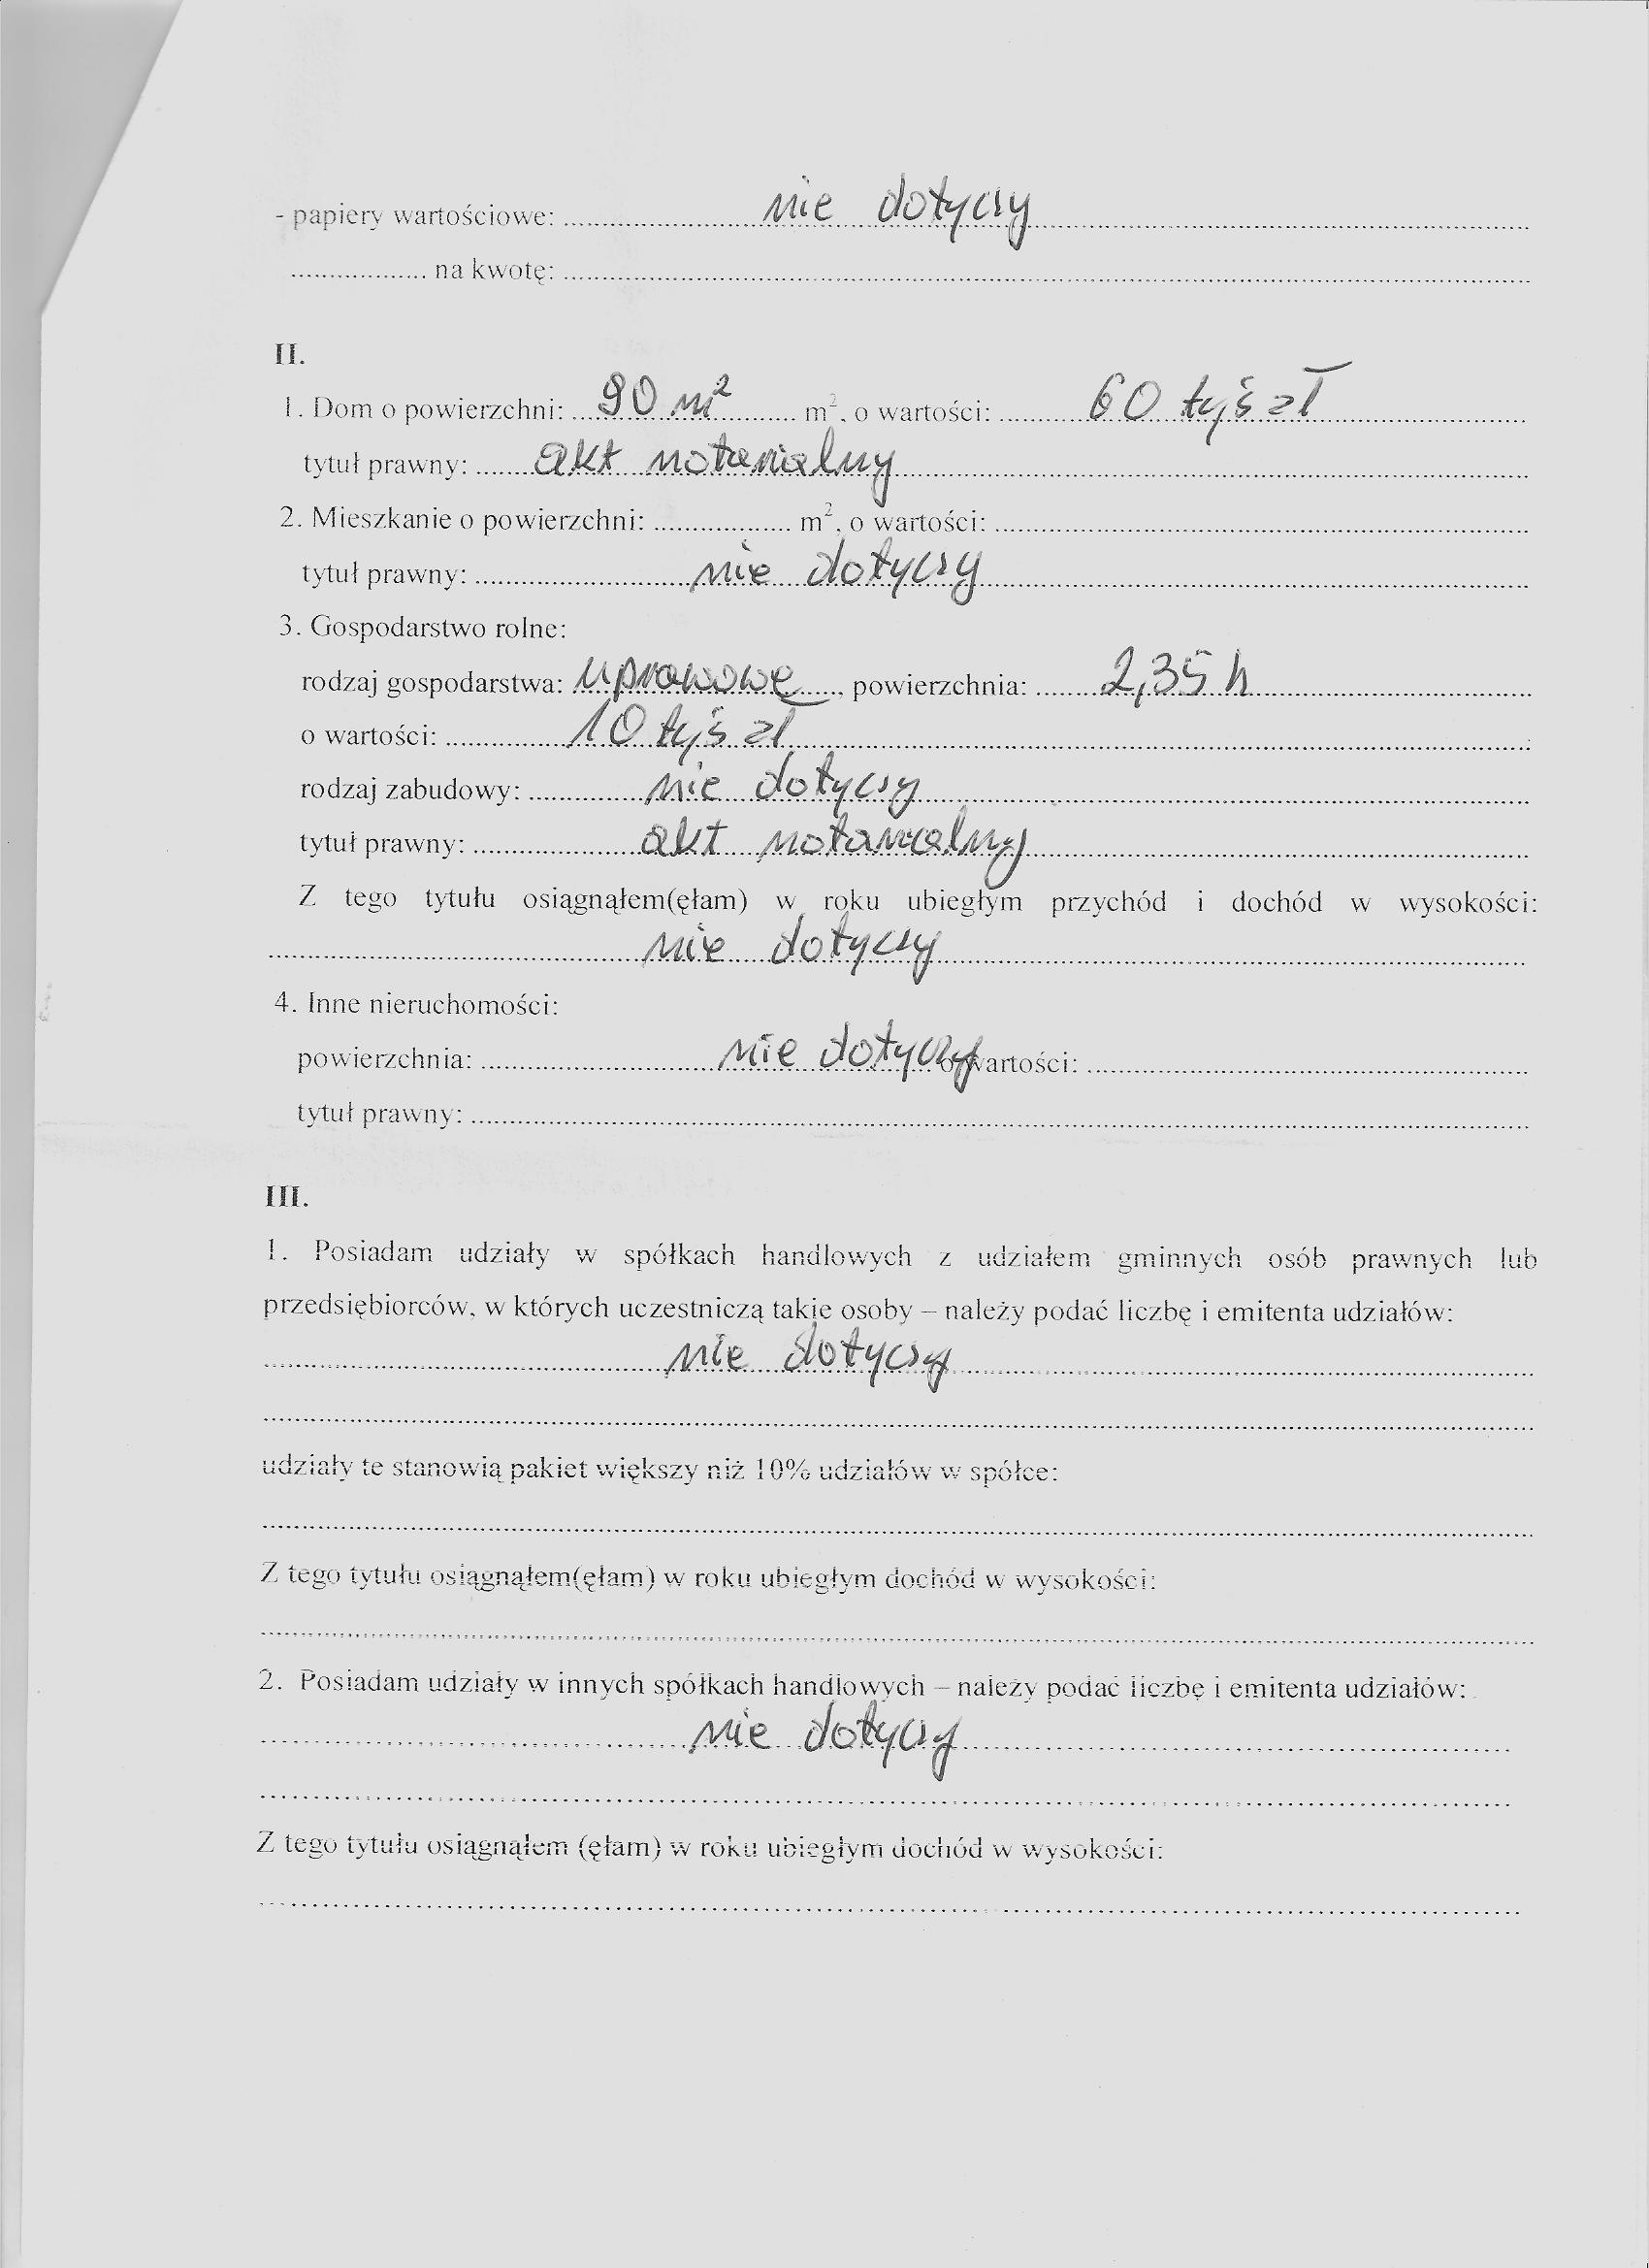 - papiery wartościowe: nie dotyczy
na kwotę:
II.
1. Dom o powierzchni: 90 m² m², o wartości: 60 tyś zł
tytuł prawny: akt notarialny
2. Mieszkanie o powierzchni: m², o wartości:
tytuł prawny: nie dotyczy
3. Gospodarstwo rolne:
rodzaj gospodarstwa: uprawowe, powierzchnia: 2,35 h
o wartości: 10 tyś zł
rodzaj zabudowy: nie dotyczy
tytuł prawny: akt notarialny
Z tego tytułu osiągnąłem(ęłam) w roku ubiegłym przychód i dochód w wysokości:
nie dotyczy
4. Inne nieruchomości:
powierzchnia: nie dotyczy o wartości:
tytuł prawny:
III.
1. Posiadam udziały w spółkach handlowych z udziałem gminnych osób prawnych lub
przedsiębiorców, w których uczestniczą takie osoby – należy podać liczbę i emitenta udziałów:
nie dotyczy
udziały te stanowią pakiet większy niż 10% udziałów w spółce:
Z tego tytułu osiągnąłem(ęłam) w roku ubiegłym dochód w wysokości:
2. Posiadam udziały w innych spółkach handlowych – należy podać liczbę i emitenta udziałów:
nie dotyczy
Z tego tytułu osiągnąłem (ęłam) w roku ubiegłym dochód w wysokości: